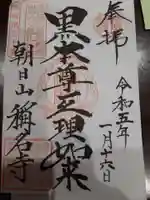 奉拝
令和五年
一月十六日
黒本尊三理如来
朝日山稱名寺